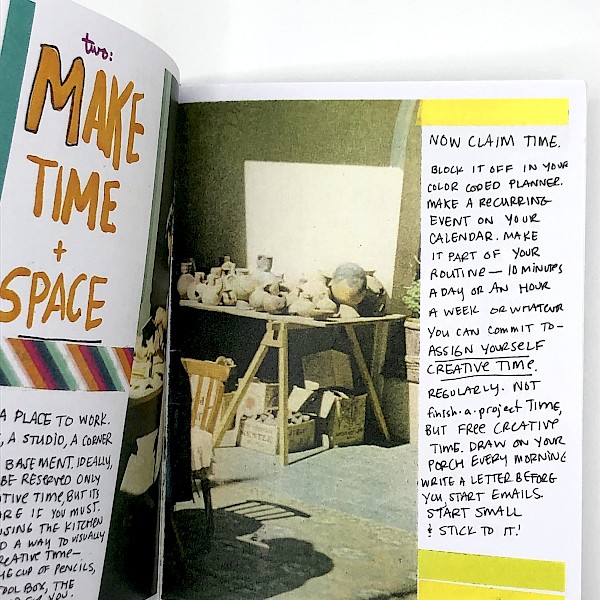 two:
MAKE
TIME
+
SPACE
A PLACE TO WORK.
, A STUDIO, A CORNER
BASEMENT. IDEALLY,
BE RESERVED ONLY
TIVE TIME, BUT ITS
ARE IF YOU MUST.
USING THE KITCHEN
D A WAY TO VISUALLY
REATIVE TIME—
CUP OF PENCILS,
TOOL BOX, THE
FOR YOU.
NOW CLAIM TIME.
BLOCK IT OFF IN YOUR
COLOR CODED PLANNER.
MAKE A RECURRING
EVENT ON YOUR
CALENDAR. MAKE
IT PART OF YOUR
ROUTINE — 10 MINUTES
A DAY OR AN HOUR
A WEEK OR WHATEVER
YOU CAN COMMIT TO –
ASSIGN YOURSELF
CREATIVE TIME.
REGULARLY. NOT
finish-a-project TIME,
BUT FREE CREATIVE
TIME. DRAW ON YOUR
PORCH EVERY MORNING
WRITE A LETTER BEFORE
YOU START EMAILS.
START SMALL
& STICK TO IT!